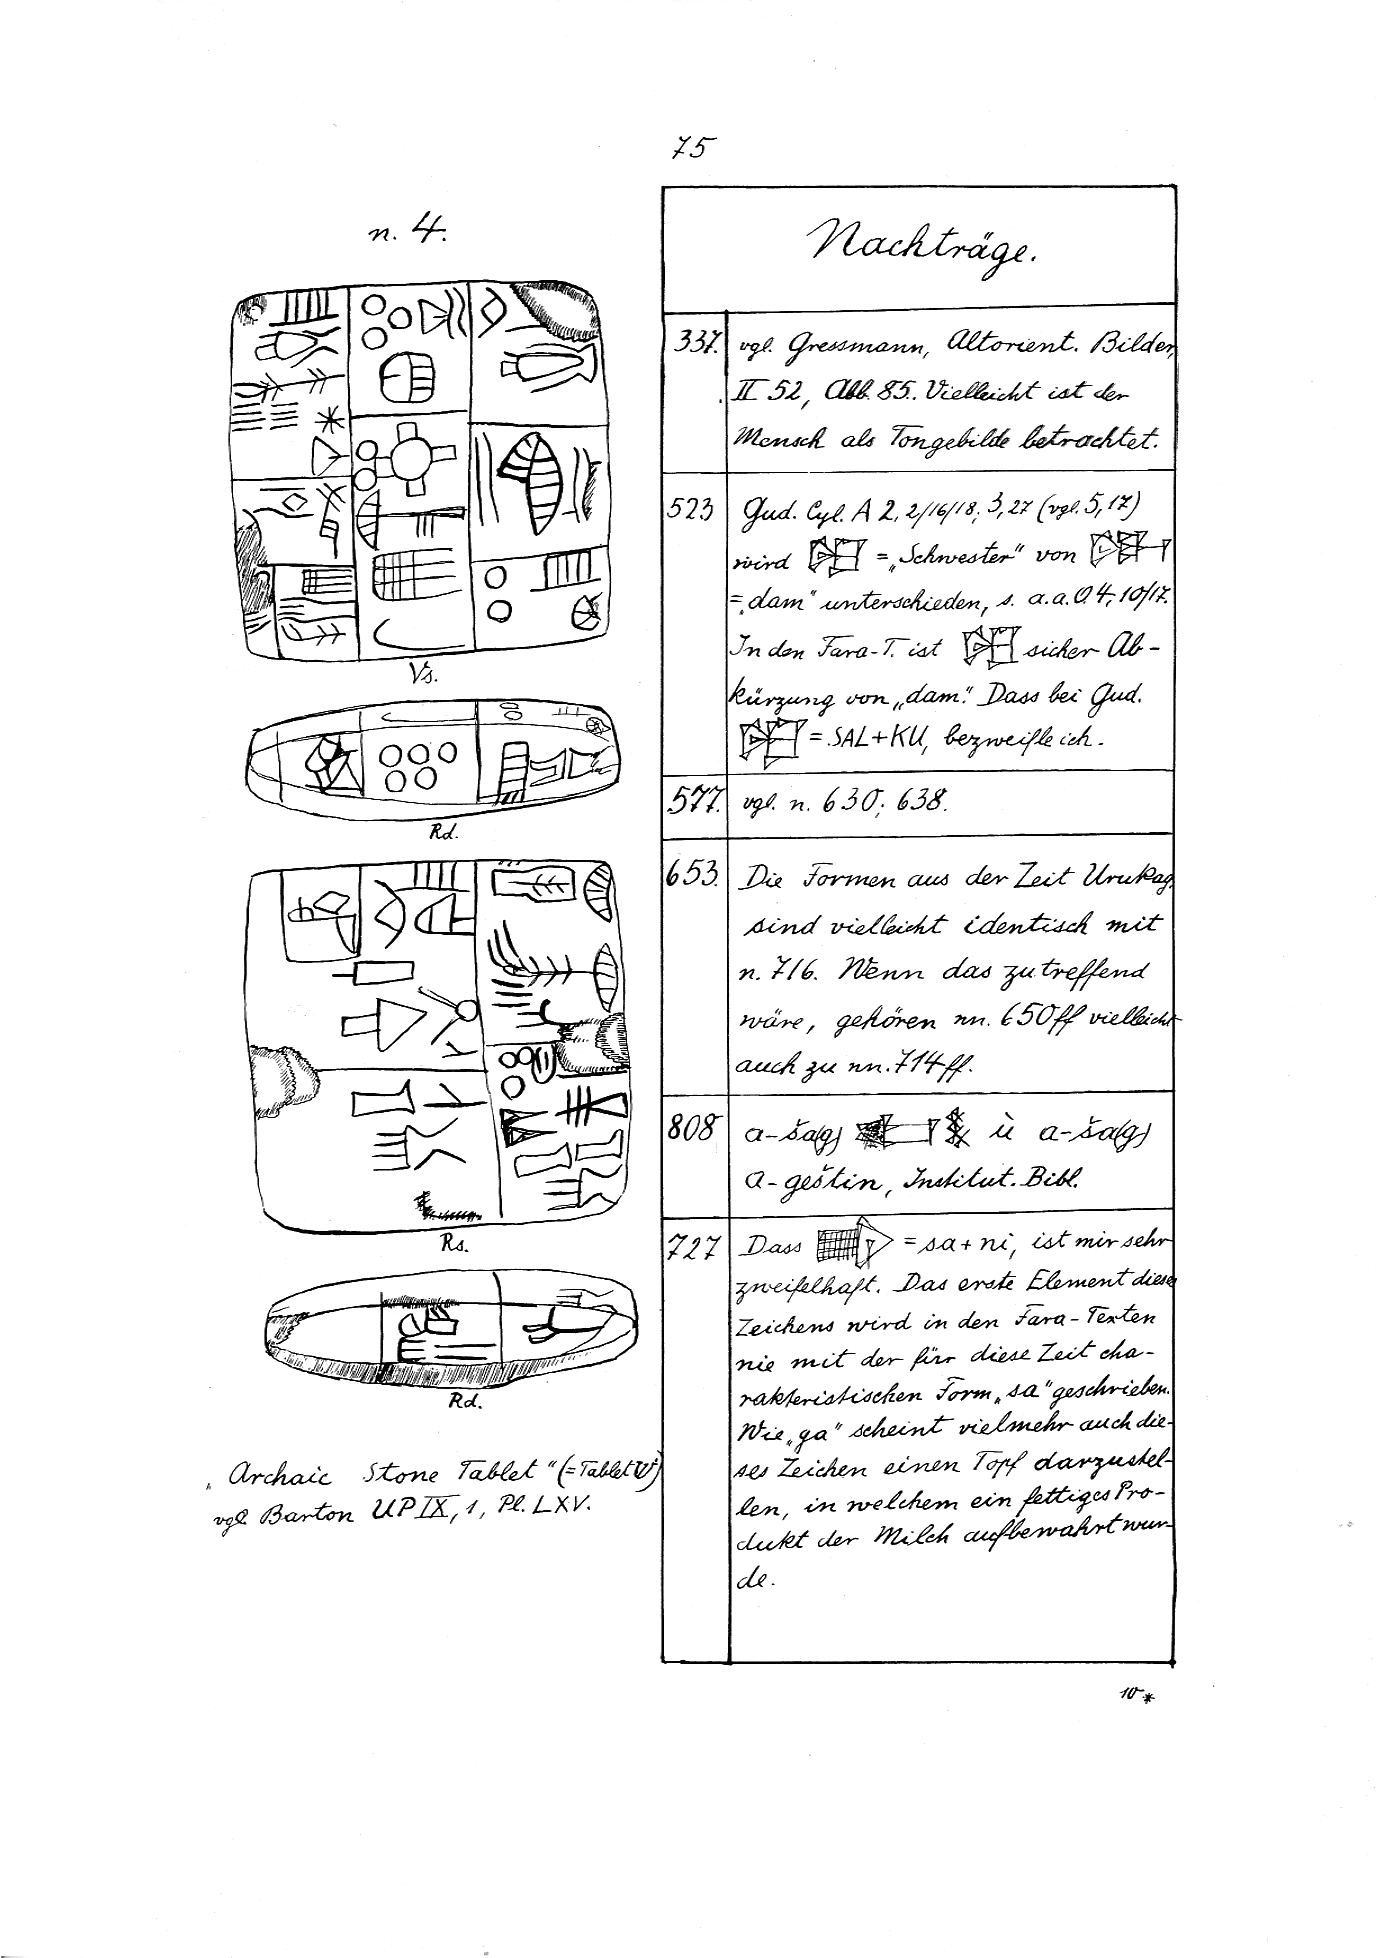 75
n. 4.
Vs.
Rd.
Rs.
Rd.
„Archaic Stone Tablet" (= Tablet V)
vgl. Barton UP IX, 1, Pl. LXV.
Nachträge.
337. vgl. Gressmann, Altorient. Bilder,
II 52, Abb. 85. Vielleicht ist der
Mensch als Tongebilde betrachtet.
523 Gud. Cyl. A 2, 2/16/18; 3, 27 (vgl. 5, 17)
wird = „Schwester" von
= „dam" unterschieden, s. a.a.O. 4, 10/17.
In den Fara-T. ist sicher Ab-
kürzung von „dam". Dass bei Gud.
= SAL+KU, bezweifle ich.
577. vgl. n. 630; 638.
653. Die Formen aus der Zeit Urukag.
sind vielleicht identisch mit
n. 716. Wenn das zutreffend
wäre, gehören nn. 650ff vielleicht
auch zu nn. 714ff.
808 a-ša(g) ù a-ša(g)
a-geštin, Institut. Bibl.
727 Dass = sa+ni, ist mir sehr
zweifelhaft. Das erste Element dieses
Zeichens wird in den Fara-Texten
nie mit der für diese Zeit cha-
rakteristischen Form „sa" geschrieben.
Wie „ga" scheint vielmehr auch die-
ses Zeichen einen Topf darzustel-
len, in welchem ein fettiges Pro-
dukt der Milch aufbewahrt wur-
de.
10*